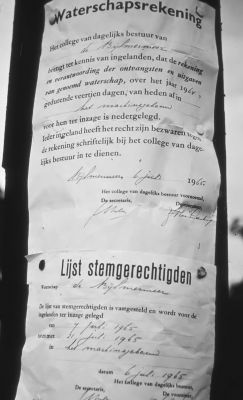 Waterschapsrekening
Het college van dagelijks bestuur van
de Bijlmermeer
brengt ter kennis van ingelanden, dat de rekening
en verantwoording der ontvangsten en uitgaven
van genoemd waterschap, over het jaar 196
gedurende veertien dagen, van heden af in
het machinegebouw
voor hen ter inzage is nedergelegd.
Ieder ingeland heeft het recht zijn bezwaren
de rekening schriftelijk bij het college van dage-
lijks bestuur in te dienen.
Bijlmermeer 6 juli 1965
Het college van dagelijks bestuur voornoemd,
De secretaris,
Lijst stemgerechtigden
de Bijlmermeer
De lijst van stemgerechtigden is vastgesteld en wordt voor de
ingelanden ter inzage gelegd
van 7 juli 1965
tot en met 31 juli 1965
in het machinegebouw
datum 6 juli 1965
Het college van dagelijks bestuur,
De secretaris, De voorzitter,